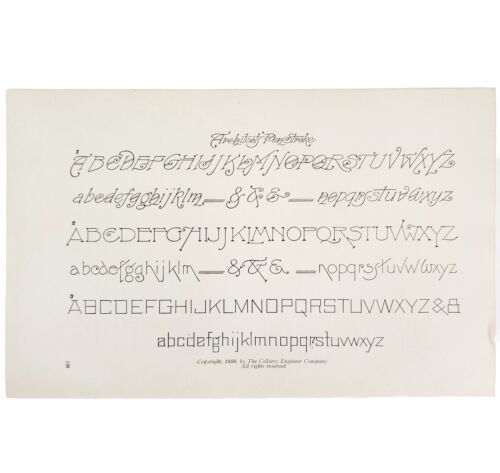 Architect Pen Stroke
1 ABCDEFGHIJKLMNOPQRSTUVWXYZ
abcdefgghijklm — & & & — nopqrstuvwxyz
2 ABCDEFGHIJKLMNOPQRSTUVWXYZ
abcdefgghijklm — & & & — nopqrstuvwxyz
3 ABCDEFGHIJKLMNOPQRSTUVWXYZ&&
abcdefghijklmnopqrstuvwxyz
Copyright, 1899, by The Colliery Engineer Company
All rights reserved